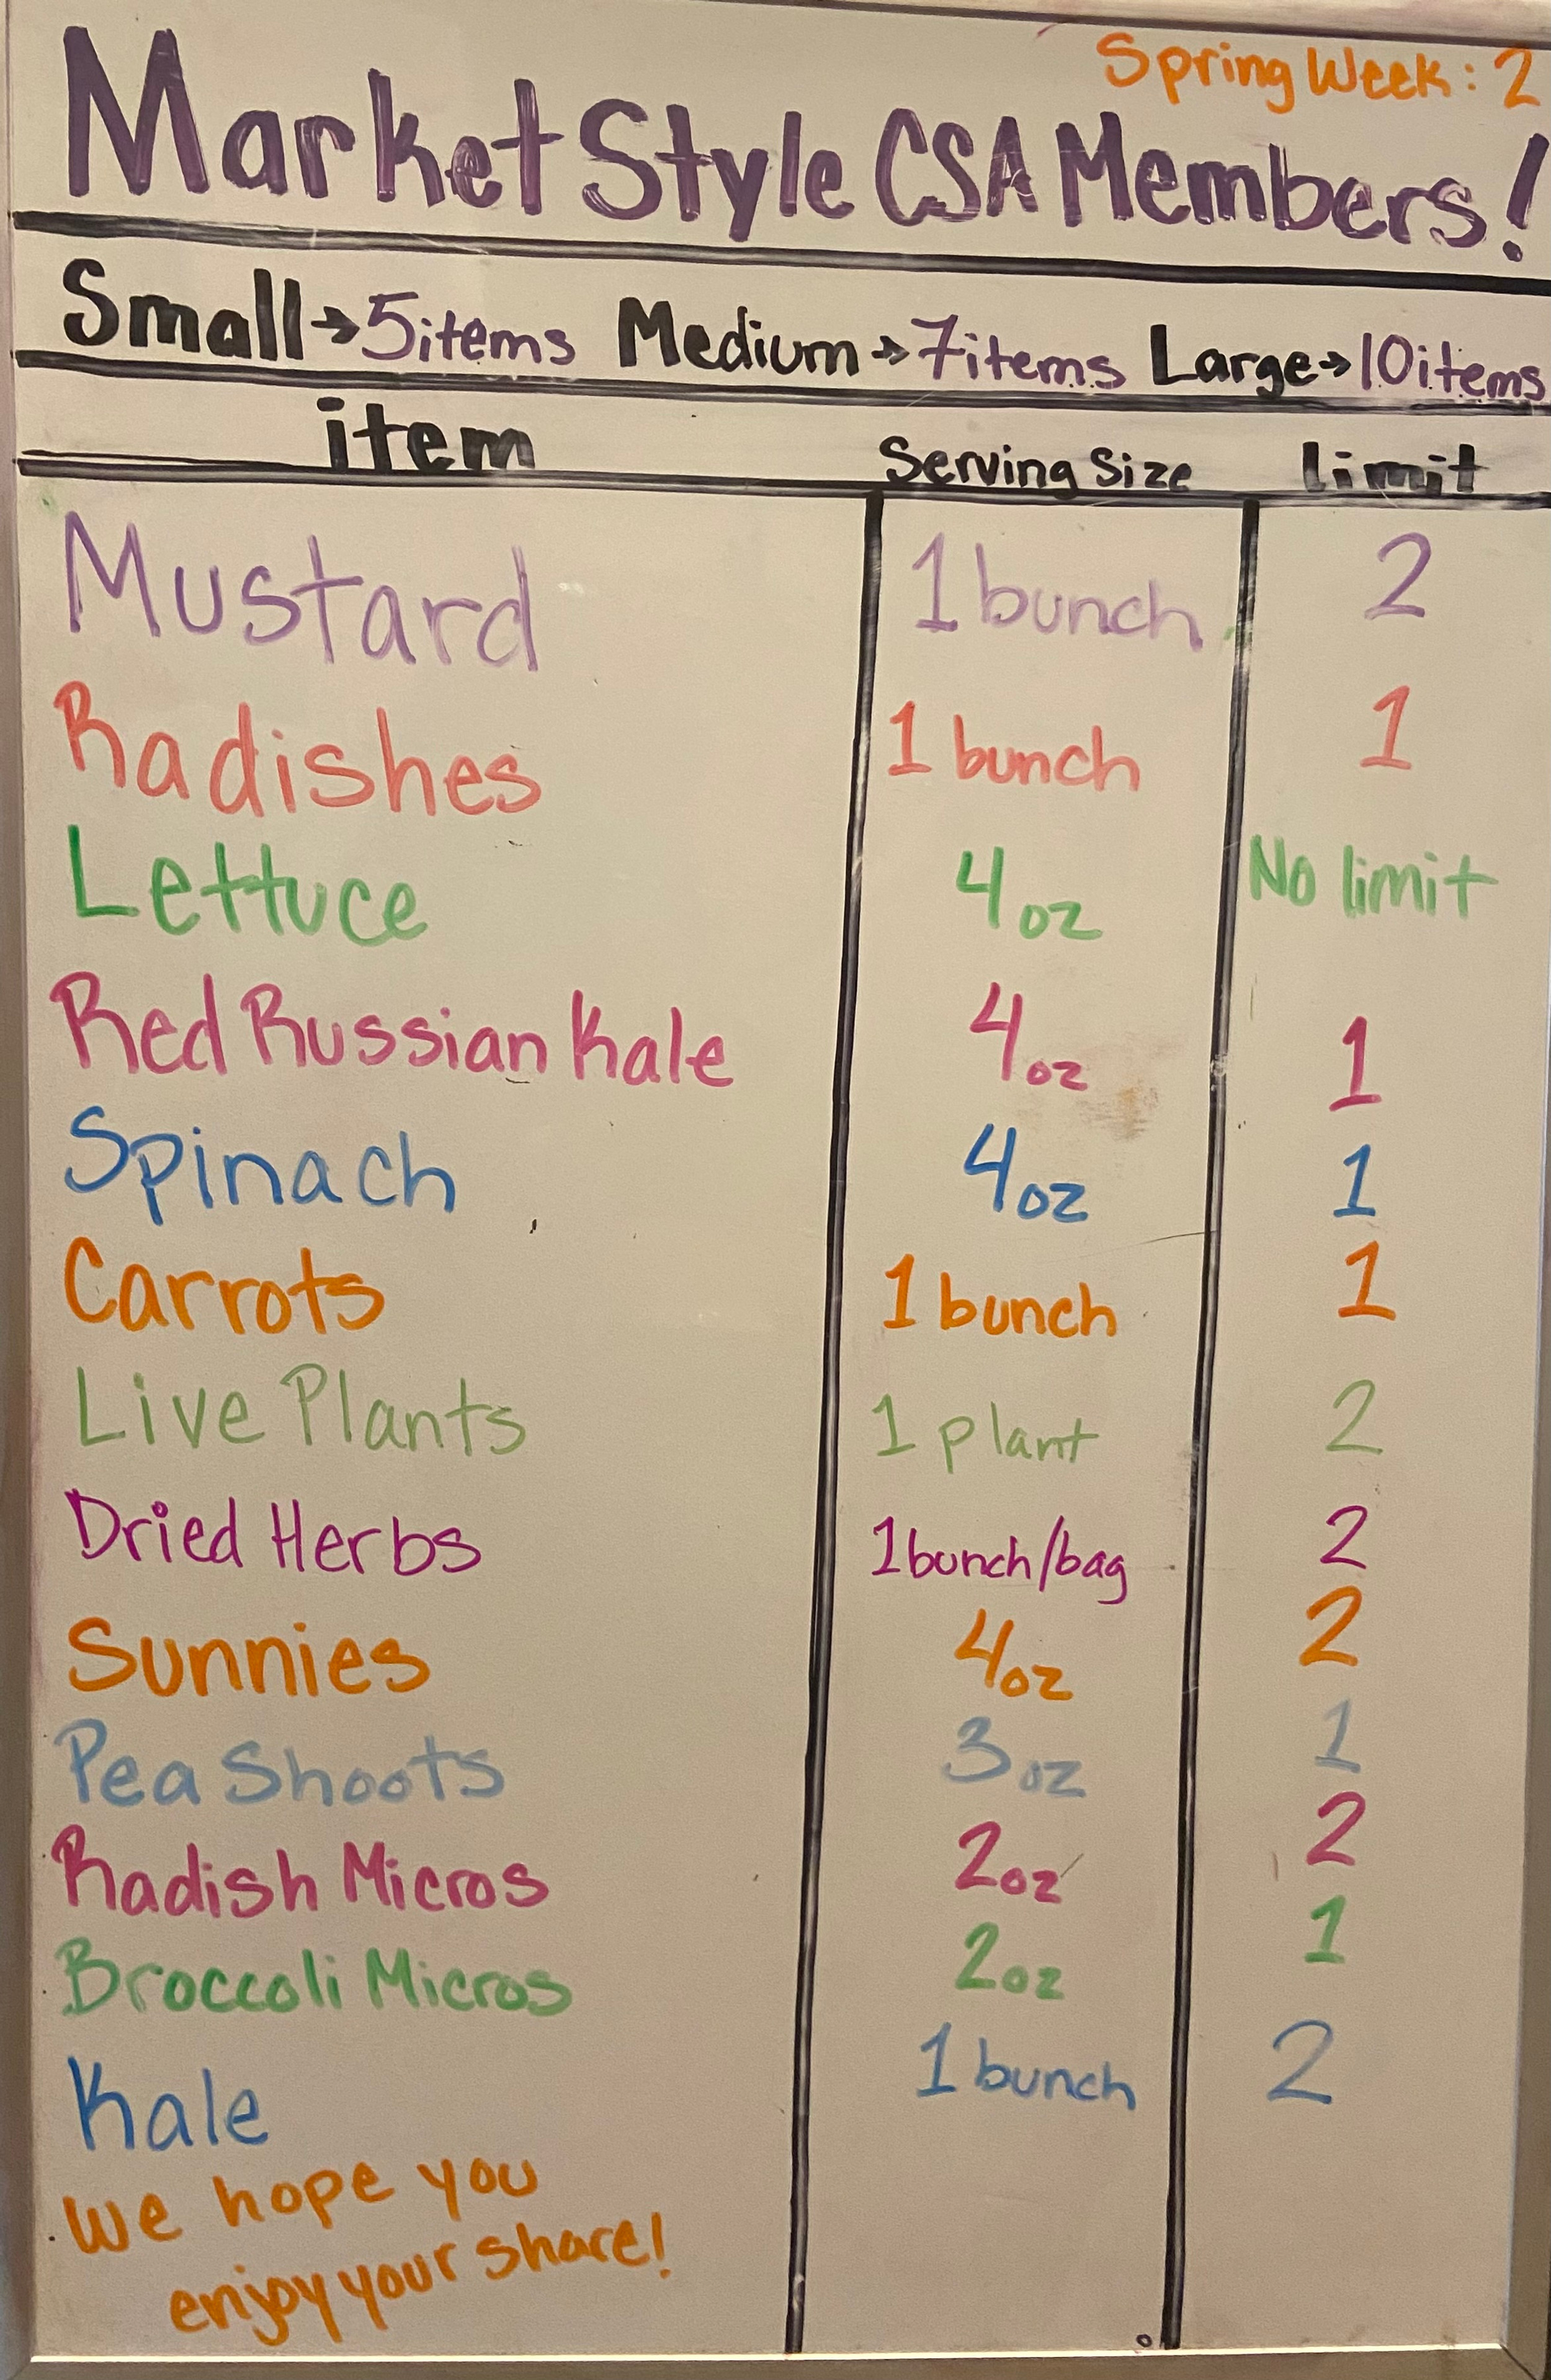 Spring Week: 2
Market Style CSA Members!
Small→5items Medium→7items Large→10items
item Serving Size limit
Mustard 1 bunch 2
Radishes 1 bunch 1
Lettuce 4oz No limit
Red Russian Kale 4oz 1
Spinach 4oz 1
Carrots 1 bunch 1
Live Plants 1 plant 2
Dried Herbs 1 bunch/bag 2
Sunnies 4oz 2
Pea Shoots 3oz 1
Radish Micros 2oz 2
Broccoli Micros 2oz 1
Kale 1 bunch 2
We hope you
enjoy your share!